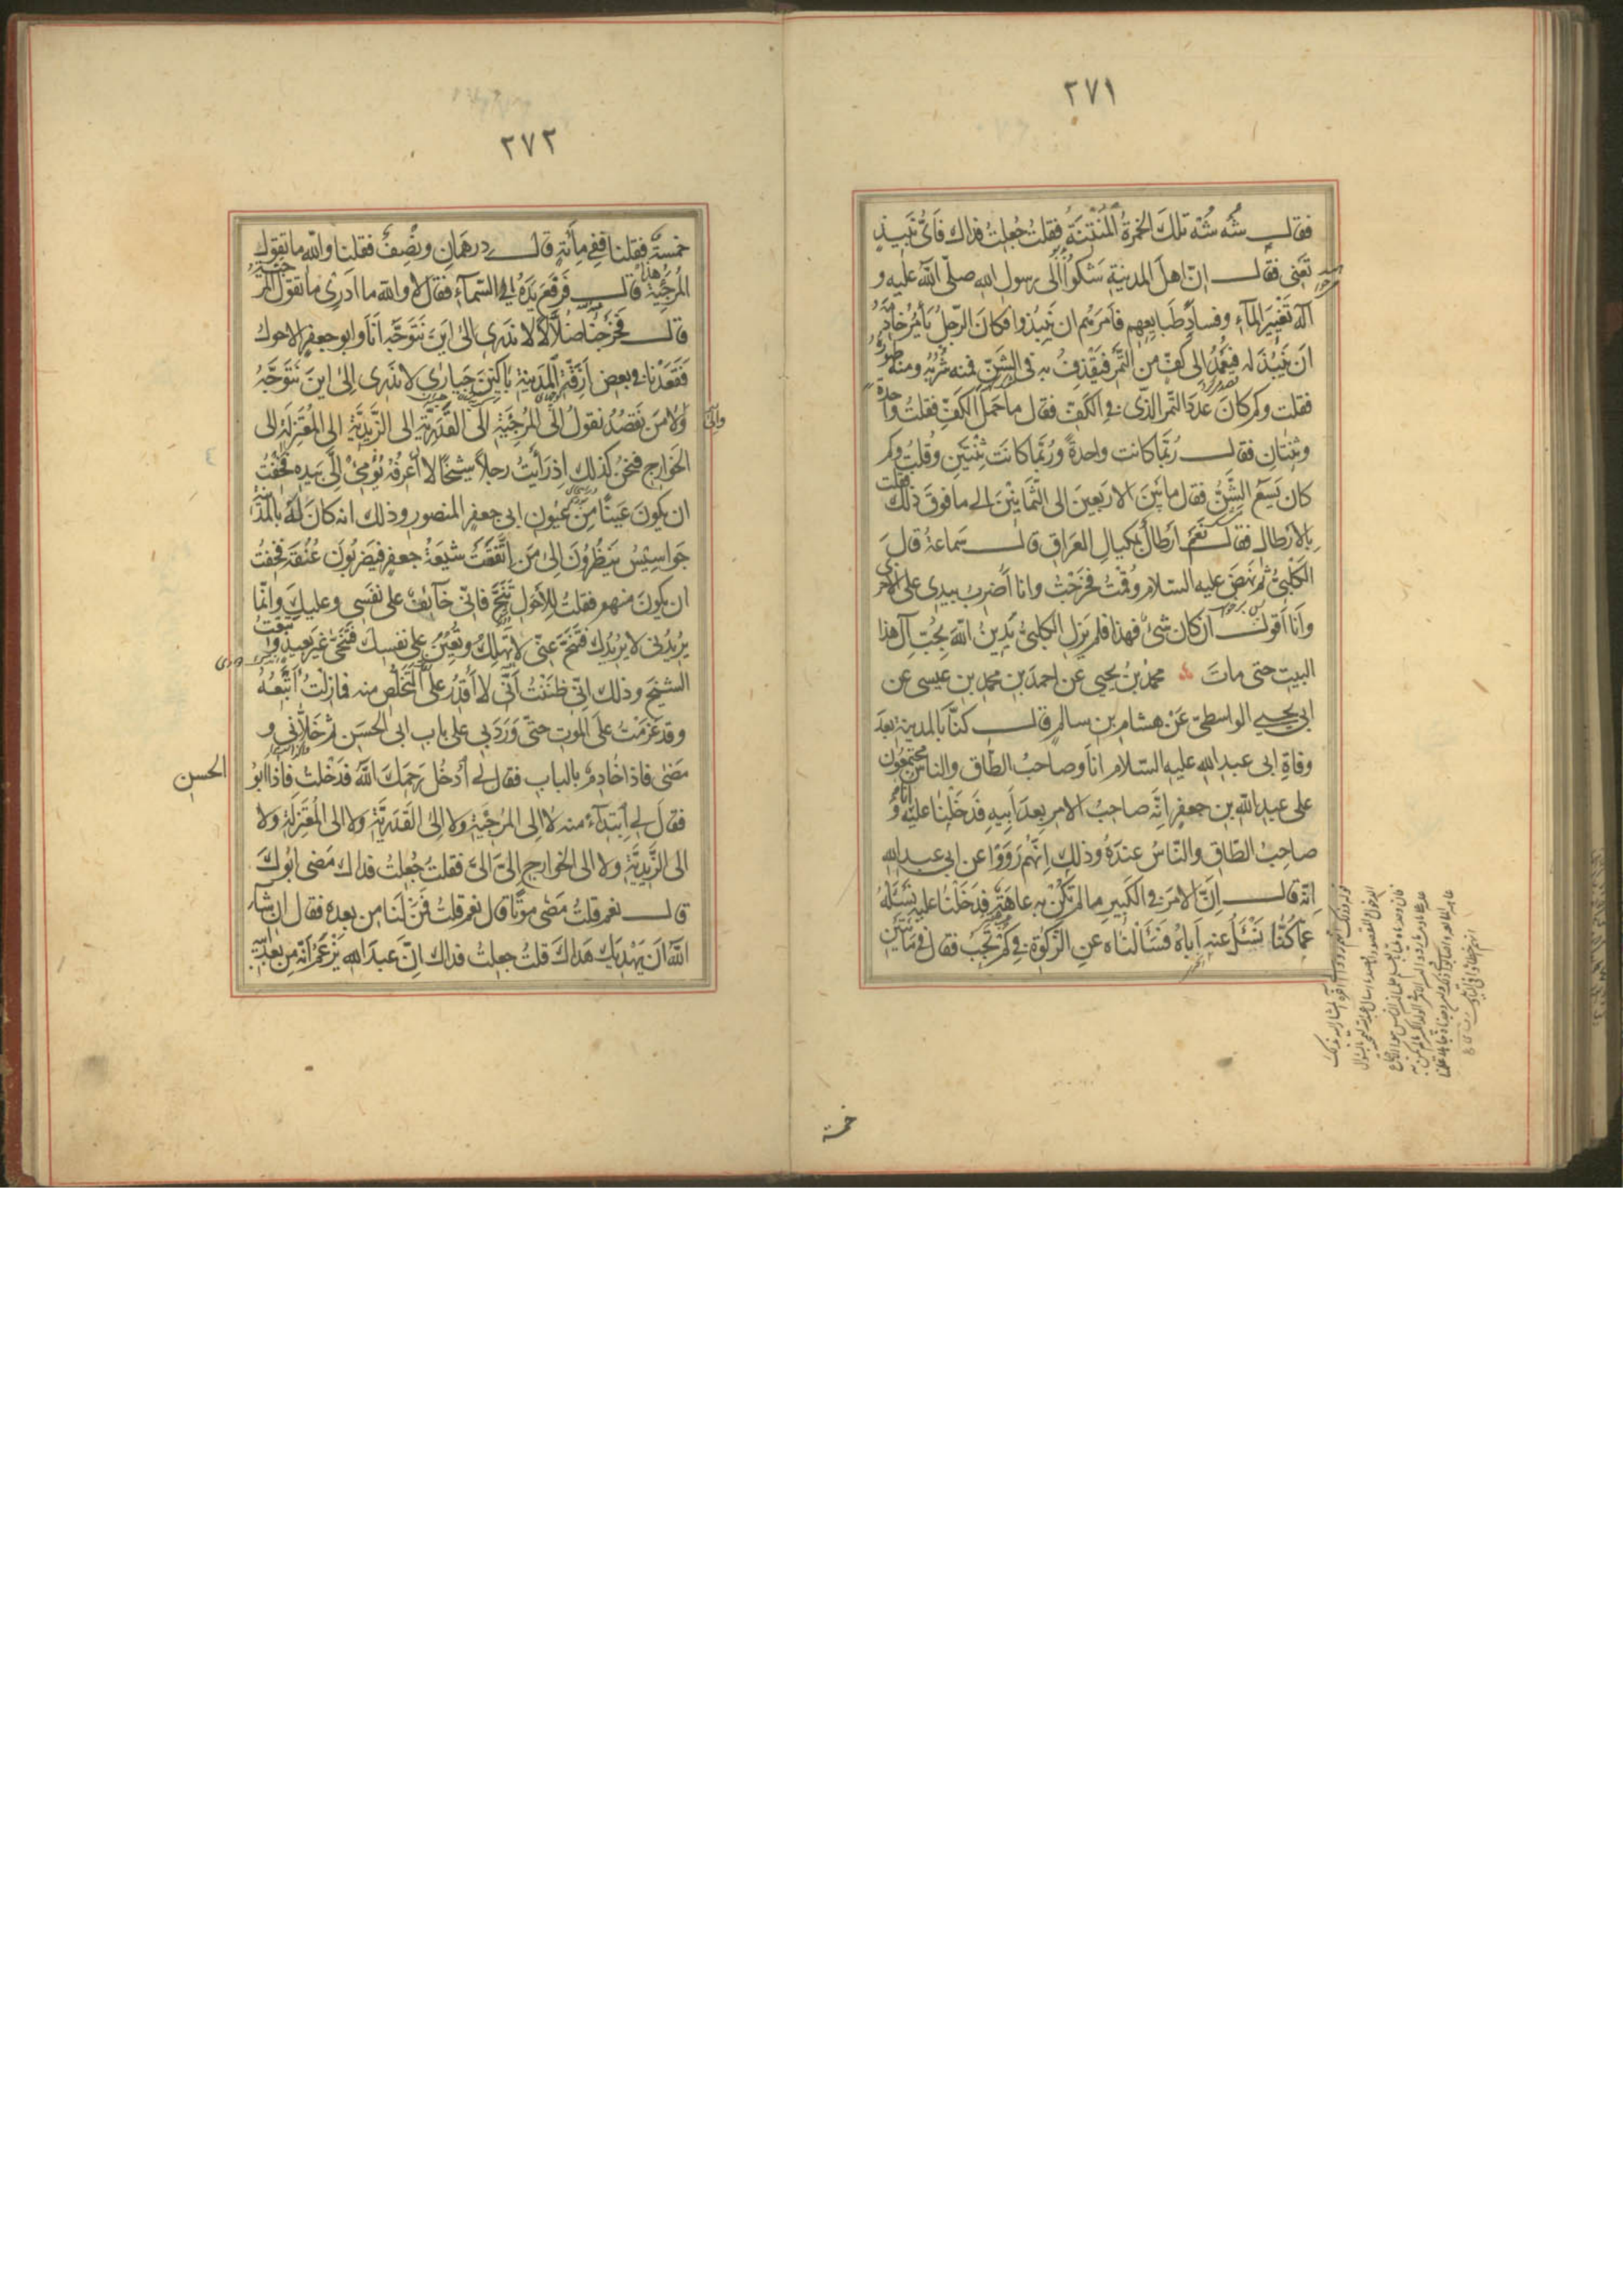 ٢٧١
فقال شُه شُه تلك الخمرة المُنتِنَةُ فقلتُ جُعِلتُ فداك فَاَىَّ نَبيذٍ
تَعنى فقال انّ اهلَ المدينةِ شَكَوْا اِلى رسولِ اللهِ صلّى اللّه عليه و
آله تَغْيِيرَ المآءِ وفسادَ طَبايِعِهم فأمَرَهُم ان يَنبِذوا فكانَ الرّجلُ يَأمُرُ خادِمَهُ
اَن يَنبِذَ له فيَعْمِدُ الى كَفٍّ من التَّمرِ فيَقذِفُ به فى الشَّنِّ فمنه شُربُهُ ومنه طهورُهُ
فقلت وكم كانَ عددَ التّمر الّذى فى الكَفِّ فقال ما حَمَلَ الكَفُّ فقلتُ واحدة
وثِنتانِ فقال رُبَّما كانت واحدةً ورُبَّما كانَت ثِنْتَينِ وقلتُ وكم
كان يَسَعُ الشَّنُّ فقال مابَينَ الاربعينَ الى الثَّمانينَ الى ما فوقَ ذلك فقلت
بالاَرطالِ فقال نَعَم اَرطالٌ بمكيالِ العراقِ قال سَماعةُ قالَ
الكلبىُّ ثم نهَضَ عليه السلام وقُمتُ فخرَجْتُ وانا اَضرِبُ بيدى على الاخرى
وانَا اَقول اِن كان شىءٌ فهذا فلم يَزَلِ الكلبىُّ يَدينُ اللّهَ بحُبِّ آلِ هذا
البيت حتى ماتَ محمّدُ بنُ يحيى عن احمدَ بنِ محمّدِ بن عيسى عن
ابى يحيى الواسطىِّ عَنْ هشامِ بن سالمٍ قال كنّا بالمدينةِ بعدَ
وفاةِ ابى عبدِ الله عليه السّلام اناَ وصاحبُ الطّاق والناسُ مجتمعون
على عبدِ اللّه بن جعفرٍ انّهُ صاحبُ الامرِ بعدَ اَبيهِ فدَخَلْنا عليه انا و
صاحبُ الطّاقِ والنّاسُ عندَهُ وذلك اَنّهُم رَوَوْا عن ابى عبدِ الله
انّه قال اِنَّ الامرَ فى الكَبيرِ مالم تَكُنْ به عاهَةٌ فدَخَلْنا عليه نَسئلُهُ
عمّا كُنّا نَسْئلُ عنه اَباهُ فسَئَلْناه عنِ الزّكوة فى كَم تَجِبُ فقال فى مِائَتَينِ
خمسة
٢٧٢
خمسةٌ فقلنا ففى مِائَةٍ قال درهَمانِ ونِصْفٌ فقلنا والله ما تقول
المُرجِئَةُ هذا قال فَرَفَعَ يَدَهُ الى السّمآءِ فقالَ لا والله ما ادرى ما تقولُ المرجئة
قال فخرَجْنا ضُلّالًا لا ندرى الى اينَ نَتَوَجّهُ اَنَا وابو جعفرٍ الاحول
فقَعَدْنا فى بعضِ اَزِقّةِ المَدينةِ باكينَ حَيارى لا نَدرى اِلى اينَ نَتَوَجّهُ
والى
ولا مَن نَقصُدُ نقولُ الى المُرجِئَةِ الى القَدَرِيّةِ الى الزَّيديَّةِ الى المُعتَزِلَةِ الى
الخَوارج فنحنُ كذلك اذ رَاَيتُ رجلاً شيخًا لا اَعرِفُهُ يُؤمِئُ اِلىَّ بيَدِهِ فخِفْتُ
ان يكونَ عَينًا مِن عُيونِ ابى جعفرٍ المنصورِ وذلك انه كانَ لهُ بالمدينة
جَواسيسُ يَنظُرونَ اِلى مَن اِتّفَقَتْ شيعَةُ جعفرٍ فيَضرِبُونَ عُنُقَهُ فخِفتُ
ان يكونَ منهم فقلتُ للاَحْوَلِ تَنَحَّ فانّى خآئِفٌ على نفسى وعليك وانّما
يُريدُنى لا يُريدُكَ فتَنَحَّ عنّى لا تَهلِكْ وتُعينَ على نفسِكَ فتَنَحّى غيرَ بَعيدٍ وتبعت
الشّيخَ وذلك انّى ظننتُ اَنّى لا اَقدِرُ على التَّخَلُّصِ منه فمازِلتُ اَتّبِعُهُ
وقد عَزَمتُ على الموتِ حتّى وَرَدَ بى على بابِ ابى الحَسَنِ ثم خَلّانى و
مَضى فاذا خادِمٌ بالبابِ فقال لى اُدخُل رَحِمَكَ اللّهُ فدَخَلتُ فاذا ابوُ
الحسن
فقال لى اِبتِدآءً منه لا الى المُرجِئَةِ ولا الى القَدَرِيَّةِ ولا الى المُعتَزِلَةِ ولا
الى الزَّيديّةِ ولا الى الخوارجِ اِلىَّ اِلىَّ فقلتُ جُعِلتُ فداك مَضى اَبُوكَ
قال نعم قلتُ مَضى موتًا قال نعم قلتُ فمَن لَنا من بعدِه فقال اِن شآءَ
اللّهُ اَن يَهدِيَكَ هَداكَ قلتُ جعلتُ فداك اِنّ عبدَ اللهِ يَزعَمُ اَنّه مِن بعدِ ابيه